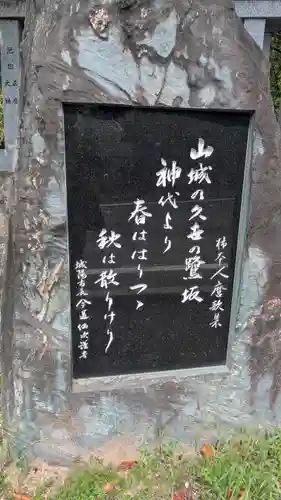 山城の久世の鷺坂
神代より
春ははりつゝ
秋は散りけり
柿本人麿歌集
城陽市長
今道仙次謹書